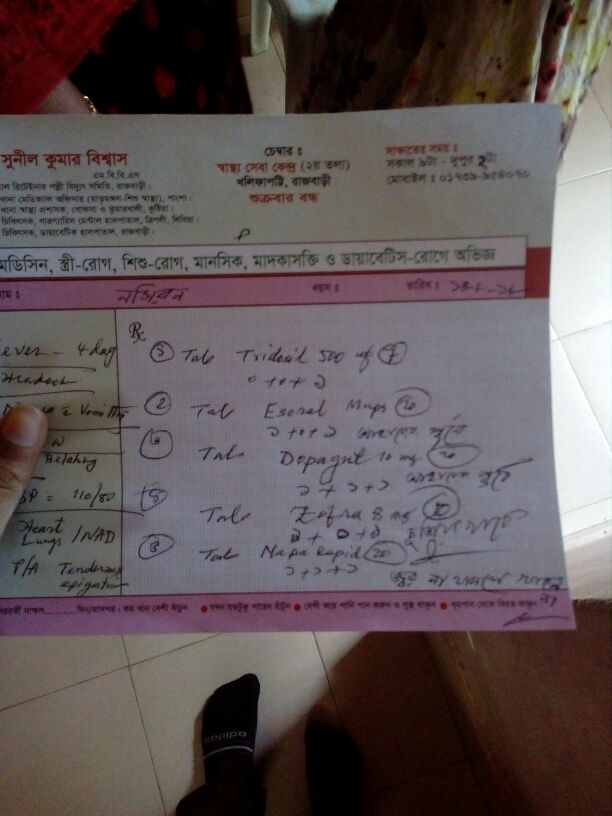 সুনীল কুমার বিশ্বাস
এম.বি.বি.এস
রিটেইনার পল্লী বিদ্যুৎ সমিতি, রাজবাড়ী।
মেডিক্যাল অফিসার (মাতৃমঙ্গল-শিশু স্বাস্থ্য), পাংশা।
থানা স্বাস্থ্য প্রশাসক, খোকসা ও কুমারখালী, কুষ্টিয়া।
চিকিৎসক, গারগ্যারিস মেন্টাল হাসপাতাল, ত্রিপলী, লিবিয়া।
চিকিৎসক, ডায়াবেটিক হাসপাতাল, রাজবাড়ী।
চেম্বার ঃ
স্বাস্থ্য সেবা কেন্দ্র (২য় তলা)
খলিফাপট্টি, রাজবাড়ী
শুক্রবার বন্ধ
সাক্ষাতের সময় ঃ
সকাল ৯টা - দুপুর ২টা
মোবাইল ঃ ০১৭৩৯-৯৫৪০৭০
মেডিসিন, স্ত্রী-রোগ, শিশু-রোগ, মানসিক, মাদকাসক্তি ও ডায়াবেটিস-রোগে অভিজ্ঞ
বয়স ঃ তারিখ ঃ
ever - 4 day
Headach
Vomitting
Belching
BP = 110/80
Heart
Lungs / NAD
P/A Tenderness
epigastrium
Rx
Tab Tridosil 500 mg 7
০+০+১
2 Tab Esoral Mups
১+০+১ আহারের পূর্বে
Tab Dopagut 10 mg
১+১+১ আহারের পূর্বে
Tab Zofra 8 mg 10
Tab Napa Rapid 20
১+১+১
দিন/মাসপর। কম খান বেশী হাঁটুন ● যখন যতটুকু পারেন হাঁটুন ● বেশী করে পানি পান করুন ও সুস্থ থাকুন ● ধূমপান থেকে বিরত থাকুন
adidas